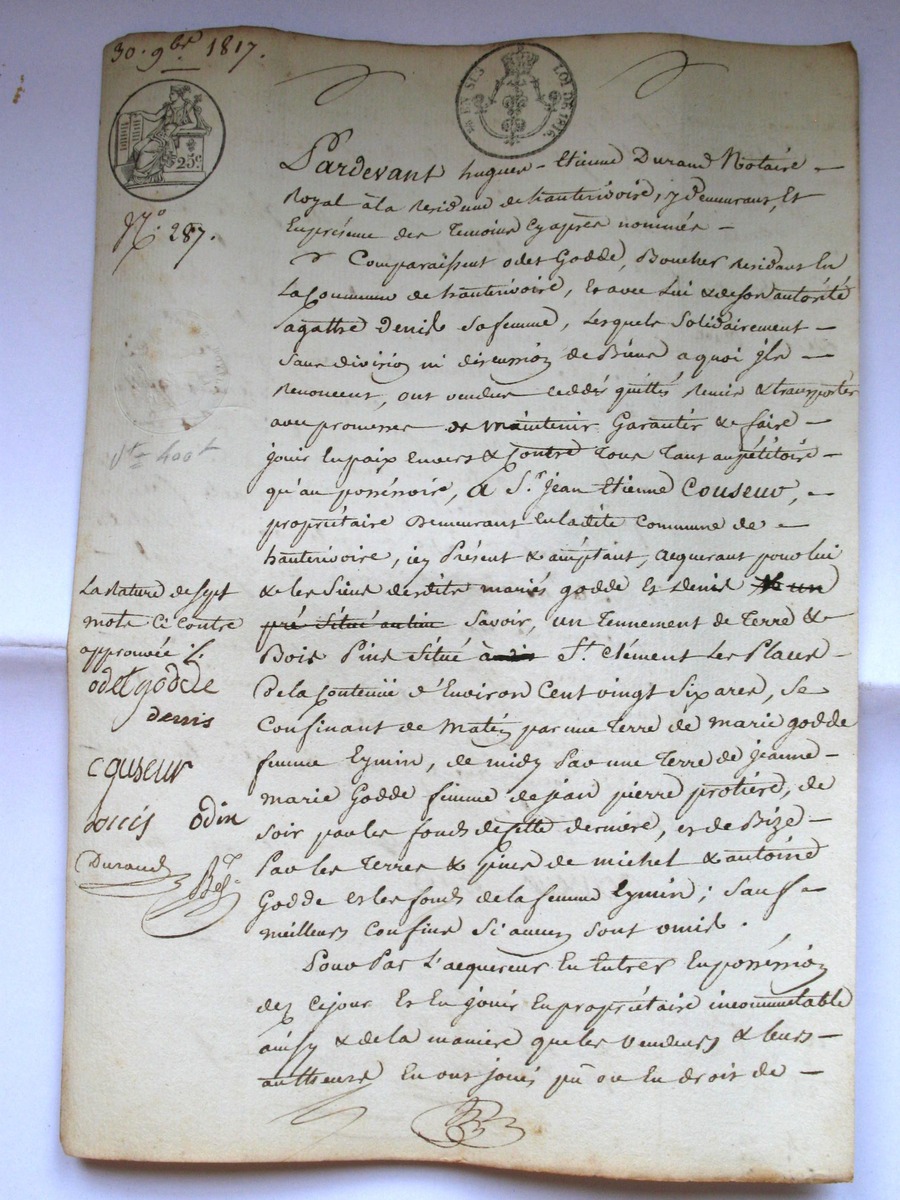 30. 9bre 1817.
25c
EN SUS LOI DE 1816.
No. 287.
Pardevant hugues-Etienne Durand Notaire
Royal à la Residence de hauterivoire, y Demeurant, Et
En présence des Temoins Cy après nommés
Comparaissent odet Godde, Boucher residant En
La Commune de hauterivoire, Et avec Lui & de son autorité
agathe Denis sa femme, Lesquels Solidairement
Sans division ni discussion de Biens a quoi ils
Renoncent, ont vendus ceddés quittés Remis & transportés
avec promesses de Maintenir Garantir & faire
jouir En paix Envers & Contre Tous Tant au pétitoire
qu'au posséssoire, a Sr. Jean Etienne Couseur,
propriétaire Demeurant En ladite Commune de
hauterivoire, icy Présent & acceptant, acquerant pour lui
& les Siens desdits mariés godde Et denis un
pré Situé au lieu Savoir, un Tennement de Terre &
Bois Pins Situé à St. Clément Les Places
De la Contenue d'Environ Cent vingt Six ares, Se
Confinant de Matin par une Terre de marie godde
femme Eymin, de midy Par une Terre de Jeanne
marie Godde femme de jean pierre protière, de
Soir par les fonds de cette dernière, et de Bize
Par les Terres & pins de michel & antoine
Godde et les fonds de la femme Eymin; Sauf
meilleurs Confins Si aucuns sont omis.
Pour Par L'acquereur En Entrer En posséssion
dez Cejour Et En jouir En propriétaire incommutable
ainsy & de la maniere que les vendeurs & leurs
autheurs En ont jouis pu ou En droit de
La Rature de Sept
mots Ci Contre
approuvée
odet godde
denis
couseur
Louis odin
Durand